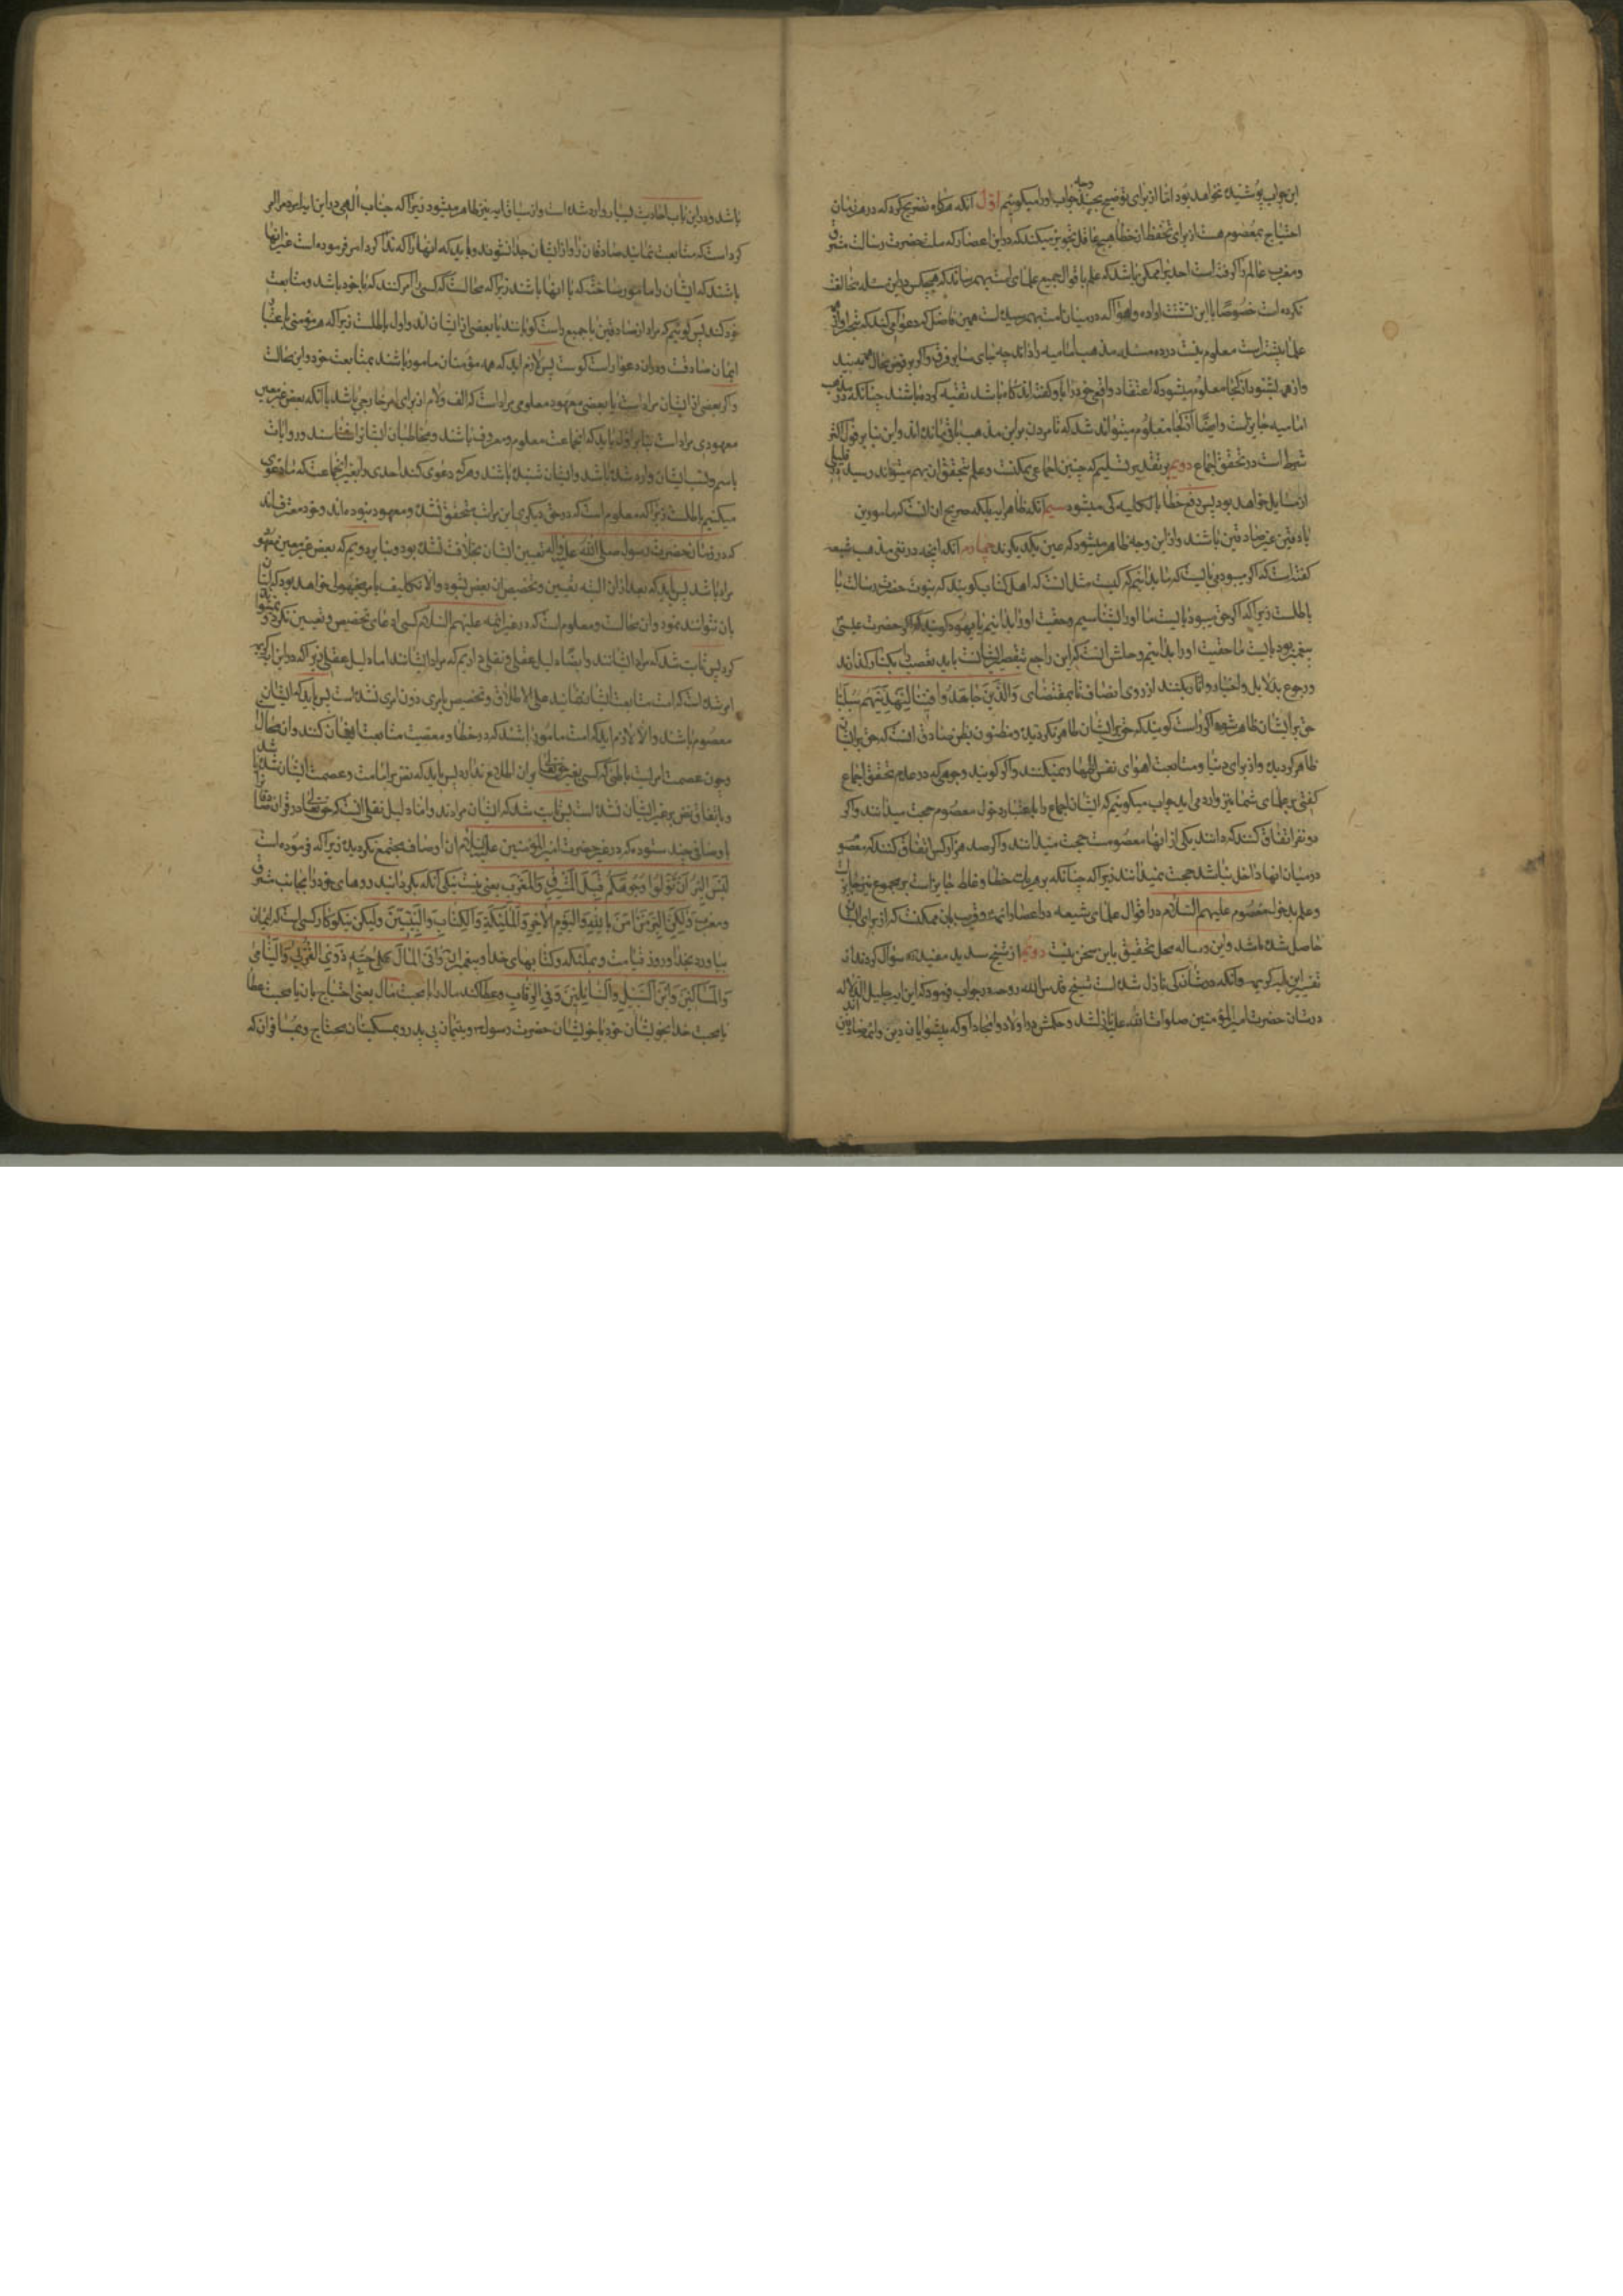 این جواب پوشیده نخواهد بود اما از برای توضیح بچند وجه جواب او را میکوئیم اول آنکه هرکاه تصریح کرد که در هر زمان
احتیاج بمعصوم هست از برای تحفظ از خطا هیچ عاقل تجویز میکند که در این اعصار که ملت حضرت رسالت شرق
ومغرب عالم را کرفته است احدیرا ممکن باشد که علم باقوال جمیع علمای امت بهم رساند که هیچکس در این مسئله مخالفت
نکرده است خصوصا با این تشتت اراده واهوا که در میان امت بهم رسیده است همین فاضل که دعوا میکند که تبحر او از همه
علما بیشتر است معلوم نیست در ده مسئله مذهب امامیه را داند چه جای سایر فرق واکر بر فرض محال همه را بیند
واز همه بشنود از کجا معلوم میشود که اعتقاد واقعی خود را باو کفته اند کاه باشد تقیه کرده باشند چنانکه در مذهب
امامیه جایز است وایضا از کجا معلوم میتواند شد که تا مردن بر این مذهب باقی مانده اند واین بنا بر قول اکثر
شرط است در تحقق اجماع دویم بر تقدیر تسلیم که چنین اجماعی ممکنست وعلم بتحقق ان بهم میتواند رسید در قلیلی
از مسایل خواهد بود پس دفع خطا بالکلیه کی میشود سیم آنکه ظاهر ایه بلکه صریح ان انست که مامورین
با صادقین غیر صادقین باشند واز این وجه ظاهر میشود که عین یکدیکرند چهارم آنکه انچه در نفی مذهب شیعه
کفته است که اکر میبود می بایست که ما بدانیم که کیست مثل انست که اهل کتاب کویند که نبوت حضرت رسالت
باطلست زیرا که اکر حق میبود بایست ما او را بشناسیم وحقیت او را بدانیم یا یهود کویند که اکر حضرت عیسی
پیغمبر بود بایست ما حقیت او را بدانیم وحلش انست که این راجع بتقصیر ایشانست باید تعصب را بکنار کذارند
ورجوع بدلایل واخبار واثار بکنند از روی انصاف تا بمقتضای والذین جاهدوا فینا لنهدینهم سبلنا
حق بر ایشان ظاهر شود اکر راست کویند که حق بر ایشان ظاهر نکردیده ومظنون بظن صادق انست که حق بر ایشان
ظاهر کردیده واز برای دنیا ومتابعت اهوای نفس اظهار نمیکنند واکر کویند وجوهی که در عدم تحقق اجماع
کفتی بر علمای شما نیز وارد می اید جواب میکوییم که ایشان اجماع را باعتبار دخول معصوم حجت میدانند واکر
دو نفر اتفاق کنند که دانند یکی از انها معصومست حجت میدانند واکر صد هزار کس اتفاق کنند که معصوم
در میان انها داخل نباشد حجت نمیدانند زیرا که چنانکه بر هر یک خطا وغلط جایز است بر مجموع نیز جایز است
وعلم بدخول معصوم علیهم السلام در اقوال علمای شیعه در اعصار ائمه وقریب بان ممکنست که از برای ایشان
حاصل شده باشد واین رساله محل تحقیق این سخن نیست دویم از شیخ سدید مفید ره سؤال کردند از
تفسیر این ایه کریمه وآنکه در شأن کی نازل شده است شیخ قدس الله روحه در جواب فرمود که این ایه جلیل الدلاله
در شان حضرت امیرالمؤمنین صلوات الله علیه نازل شد وحکمش در اولاد امجاد او که پیشوایان دین وائمه صادقین اند
باشد ودر این باب احادیث بسیار وارد شده است واز سیاق ایه نیز ظاهر میشود زیرا که جناب الهی در این ایه امر
کرده است که متابعت نمایند صادقان را واز ایشان جدا نشوند وباید که انها را که ندا کرده امر فرموده است غیر انها
باشند که ایشان را مامور ساخته که با انها باشند زیرا که محالست که کسی را امر کنند که با خود باشد ومتابعت
خود کند پس کوییم که مراد از صادقین یا جمیع راست کویانند یا بعضی از ایشان اند واول باطلست زیرا که هر مؤمنی باعتبار
ایمان صادقست ودر ان دعوا راست کوست پس لازم اید که همه مؤمنان مامور باشند بمتابعت خود واین محالست
واکر بعضی از ایشان مراد است یا بعضی معهود معلومی مراد است که الف ولام از برای عهد خارجی باشد یا آنکه بعض غیر معین
معهودی مراد است بنا بر اول باید که انجماعت معلوم ومعروف باشند ومخاطبان ایشانرا شناسند وروایات
باسم ونسب ایشان وارد شده باشد وایشان شنیده باشند وهرکه دعوی کند احدی را بغیر انجماعت که ما دعوی
میکنیم باطلست زیرا که معلوم است که در حق دیکری این مراتب تحقق نشده ومعهود نبوده اند وخود معترفند
که در زمان حضرت رسول صلی الله علیه واله تعیین ایشان بخلافت نشده بود وبنا بر دویم که بعض غیر معین معهود
مراد باشد پس باید که بعد از ان البته تعیین وتخصیص ان بعض بشود والا تکلیف بامر مجهولی خواهد بود که ایشان
بان نتوانند نمود وان محالست ومعلوم است که در غیر ائمه علیهم السلام کسی ادعای تخصیص وتعیین نکرده ونمیتواند
کرد پس ثابت شد که مراد ایشانند وایضا دلیل عقلی ونقلی داریم که مراد ایشانند اما دلیل عقلی زیرا که در این ایه کریمه
امر شده است که امت متابعت ایشان نمایند علی الاطلاق وتخصیص بامری دون امری نشده است پس باید که ایشان
معصوم باشند والا لازم اید که امت مامور باشند که در خطا ومعصیت متابعت ایشان کنند وان محال است
وچون عصمت امریست باطنی که کسی بغیر حق تعالی بر ان اطلاع ندارد پس باید که نص بر امامت وعصمت ایشان شده باشد
وباتفاق نص بر غیر ایشان نشده است پس ثابت شد که ایشان مرادند واما دلیل نقلی انست که حق تعالی در قران صادقان را
باوصافی چند ستوده که در غیر حضرت امیرالمؤمنین علیه السلام ان اوصاف مجتمع نکردیده زیرا که فرموده است
لیس البر ان تولوا وجوهکم قبل المشرق والمغرب یعنی نیست نیکی آنکه بکردانید روهای خود را بجانب مشرق
ومغرب ولکن البر من امن بالله والیوم الاخر والملئکة والکتاب والنبیین ولیکن نیکوکار کسی است که ایمان
بیاورد بخدا وروز قیامت وبملئکه وکتابهای خدا وپیغمبران واتی المال علی حبه ذوی القربی والیتامی
والمساکین وابن السبیل والسایلین وفی الرقاب وعطا کند مال را با محبت مال یعنی احتیاج بان با محبت عطا
یا محبت خدا بخویشان خود یا خویشان حضرت رسول ص ویتیمان بی پدر ومسکینان محتاج ومسافران که